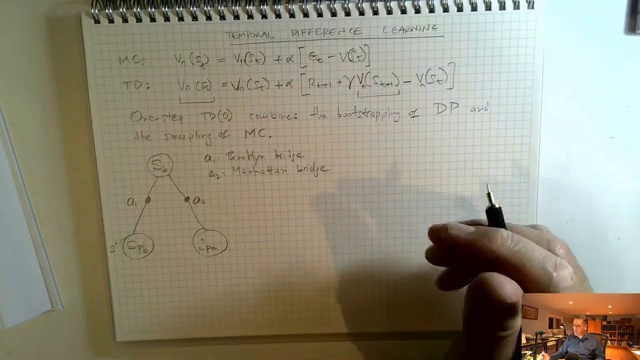 TEMPORAL DIFFERENCE LEARNING
MC: Vπ(St) = Vπ(St) + α [Gt − V(St)]
TD: Vπ(S) = Vπ(St) + α [Rt+1 + γ Vπ(St+1) − Vπ(St)]
One-step TD(0) combines the bootstrapping of DP and
the sampling of MC.
a1: Brooklyn bridge
a2: Manhattan bridge
Sb
a1 a2
s' Spb Spm